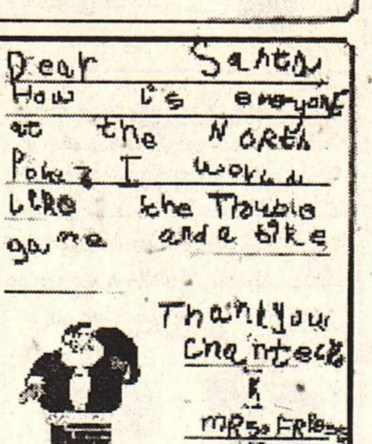 Dear Santa
How is everyone
at the North
Pole? I would
Like the Trouble
game and a bike
Thankyou
K